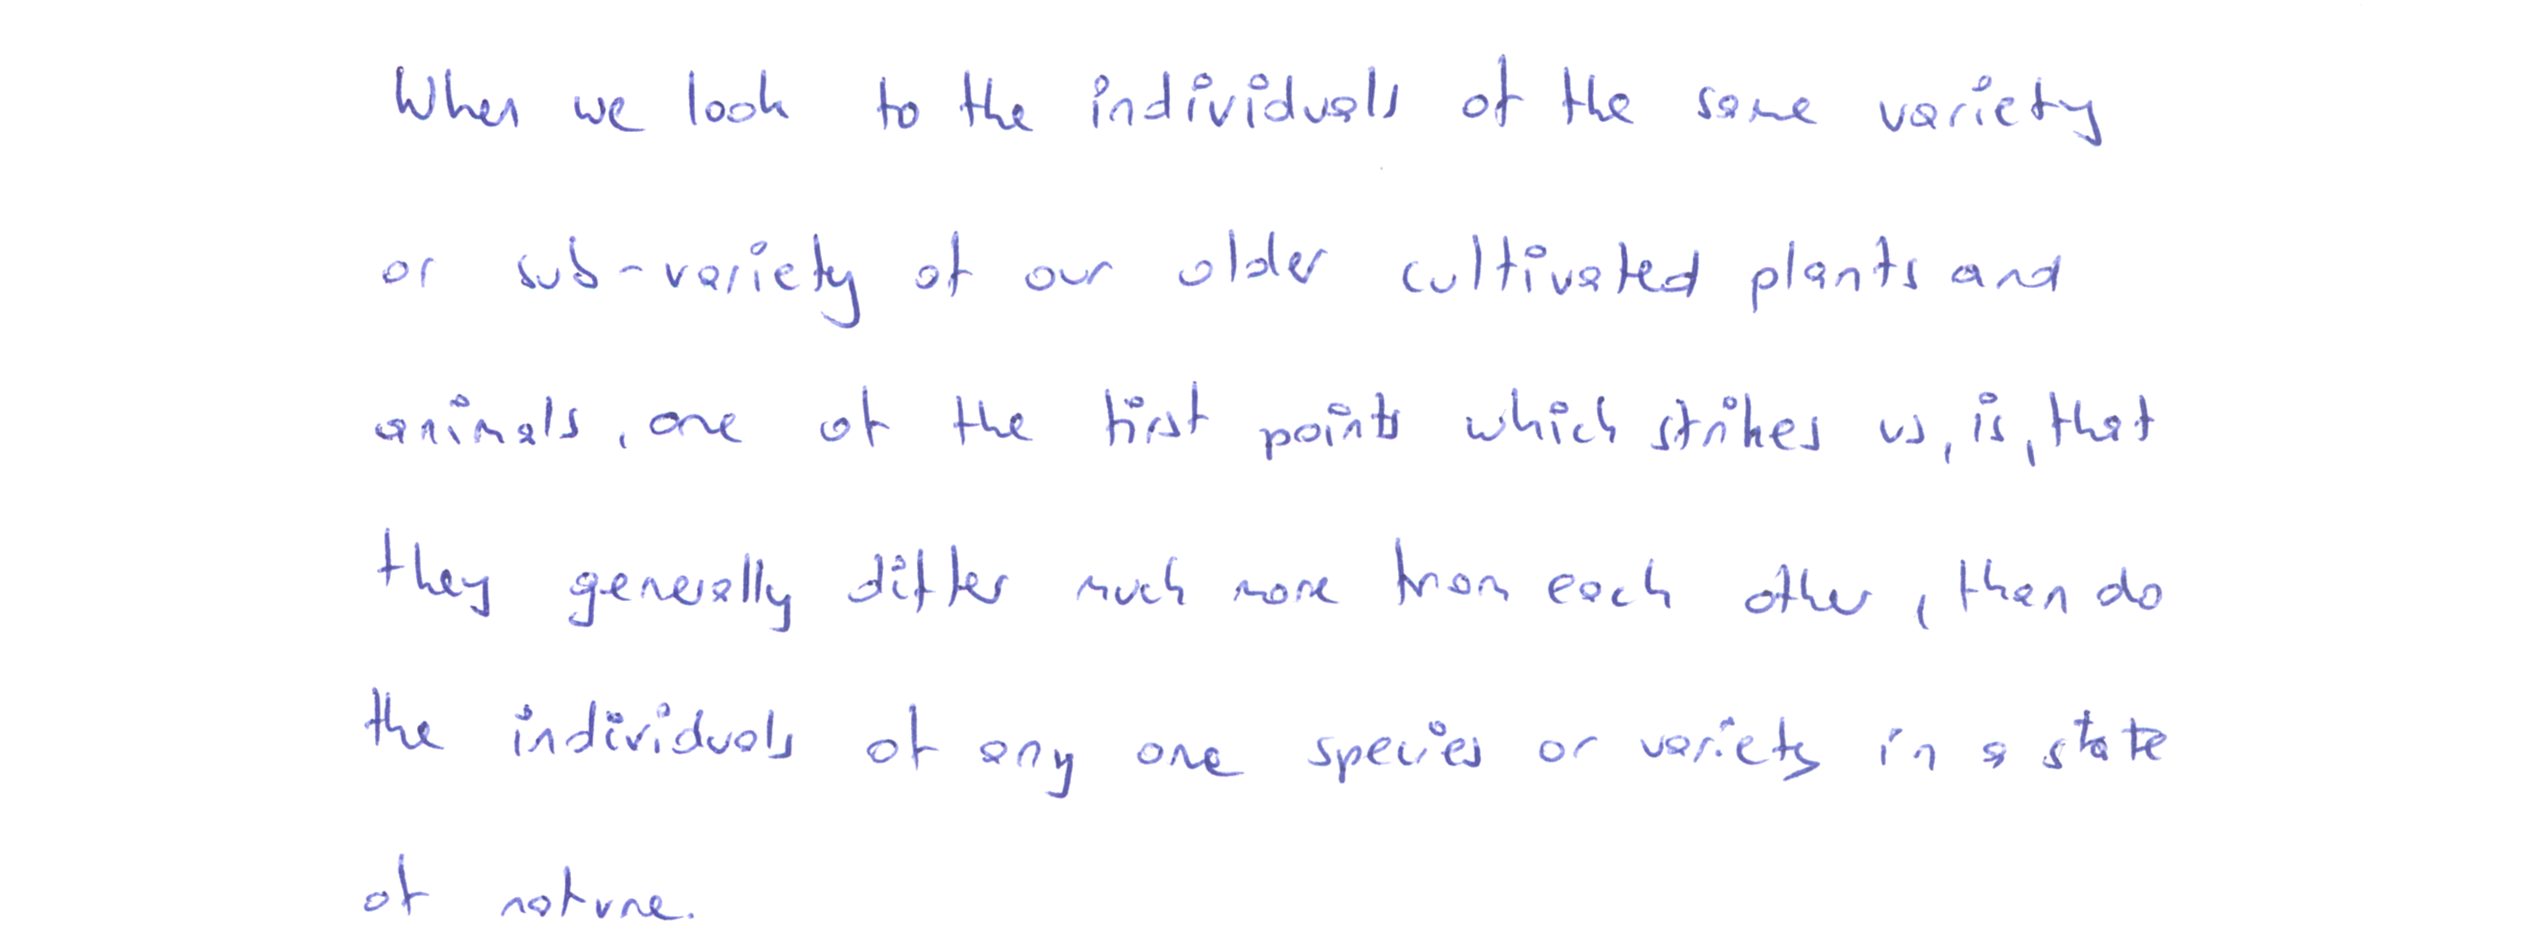 When we look to the individuals of the same variety
or sub-variety of our older cultivated plants and
animals, one of the first points which strikes us, is, that
they generally differ much more from each other, than do
the individuals of any one species or variety in a state
of nature.